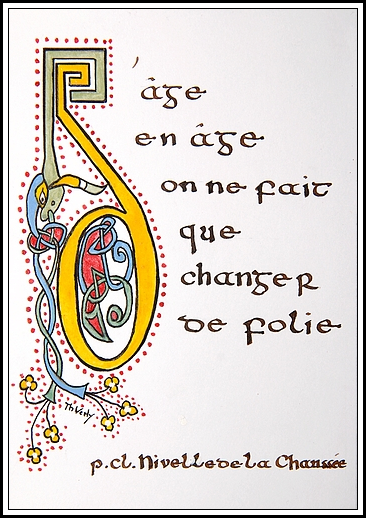 D'âge
en âge
on ne fait
que
changer
de folie
Th Verly
p.cl. Nivelle de la Chaussée